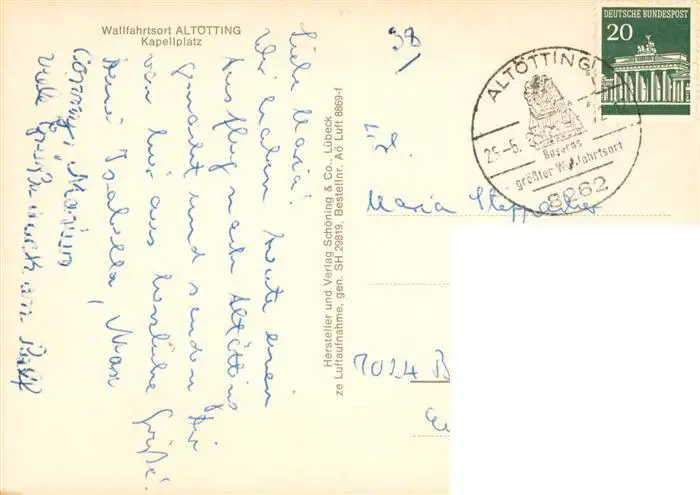 Wallfahrtsort ALTÖTTING
Kapellplatz
Liebe Maria!
Wir haben heute einen
Ausflug nach Altötting
gemacht und senden Dir
von hier aus herzliche Grüße!
Deine Isabella, Max
Conny, Marion
Viele Grüße auch an
Hersteller und Verlag Schöning & Co., Lübeck
ze Luftaufnahme, gen. SH 29819, Bestellnr. Aö Luft 8869-f
38
DEUTSCHE BUNDESPOST
20
ALTÖTTING
25.-6.
Bayerns
größter Wallfahrtsort
8262
Frl.
Maria
7024 B